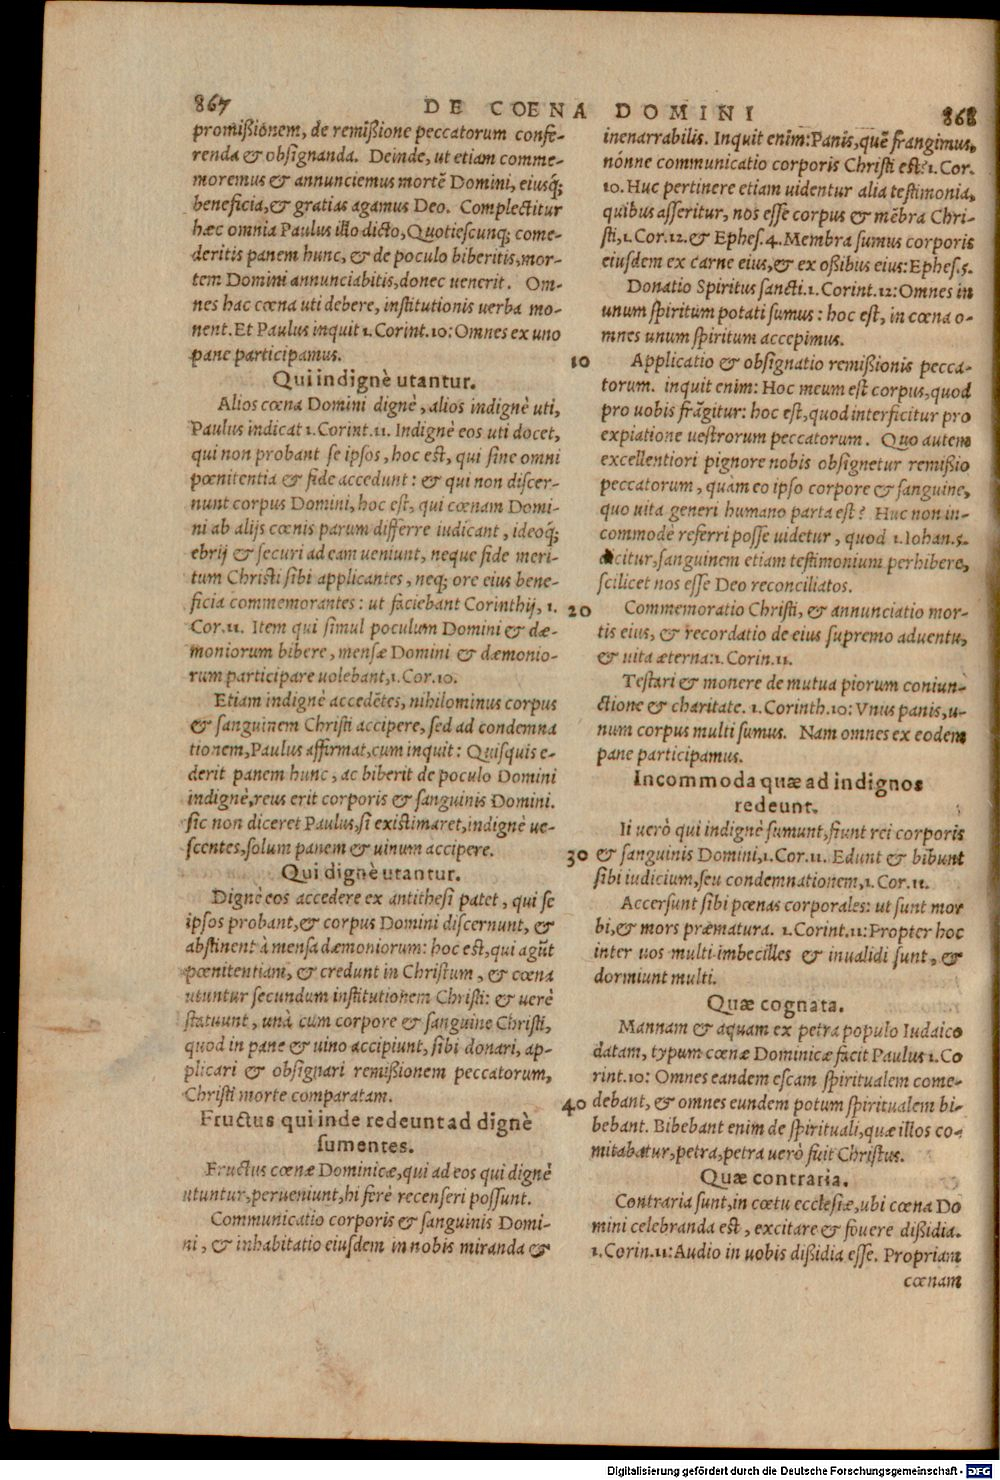 867
DE COENA DOMINI
868
promißionem, de remißione peccatorum confe-
renda & obsignanda. Deinde, ut etiam comme-
moremus & annunciemus mortẽ Domini, eiusq́;
beneficia, & gratias agamus Deo. Complectitur
hæc omnia Paulus illo dicto, Quotiescunq; come-
deritis panem hunc, & de poculo biberitis, mor-
tem Domini annunciabitis, donec uenerit. Om-
nes hac cœna uti debere, institutionis uerba mo-
nent. Et Paulus inquit 1. Corint. 10: Omnes ex uno
pane participamus.
Qui indignè utantur.
Alios cœna Domini dignè, alios indignè uti,
Paulus indicat 1. Corint. 11. Indignè eos uti docet,
qui non probant se ipsos, hoc est, qui sine omni
pœnitentia & fide accedunt: & qui non discer-
nunt corpus Domini, hoc est, qui cœnam Domi-
ni ab alijs cœnis parum differre iudicant, ideoq́;
ebrij & securi ad eam ueniunt, neque fide meri-
tum Christi sibi applicantes, neq; ore eius bene-
ficia commemorantes: ut faciebant Corinthij, 1.
Cor. 11. Item qui simul poculum Domini & dæ-
moniorum bibere, mensæ Domini & dæmonio-
rum participare uolebant, 1. Cor. 10.
Etiam indignè accedẽtes, nihilominus corpus
& sanguinem Christi accipere, sed ad condemna
tionem, Paulus affirmat, cum inquit: Quisquis e-
derit panem hunc, ac biberit de poculo Domini
indignè, reus erit corporis & sanguinis Domini.
sic non diceret Paulus, si existimaret, indignè ue-
scentes, solum panem & uinum accipere.
Qui dignè utantur.
Dignè eos accedere ex antithesi patet, qui se
ipsos probant, & corpus Domini discernunt, &
abstinent à mensa dæmoniorum: hoc est, qui agũt
pœnitentiam, & credunt in Christum, & cœna
utuntur secundum institutionem Christi: & uerè
statuunt, unà cum corpore & sanguine Christi,
quod in pane & uino accipiunt, sibi donari, ap-
plicari & obsignari remißionem peccatorum,
Christi morte comparatam.
Fructus qui inde redeunt ad dignè
sumentes.
Fructus cœnæ Dominicæ, qui ad eos qui dignè
utuntur, perueniunt, hi ferè recenseri possunt.
Communicatio corporis & sanguinis Domi-
ni, & inhabitatio eiusdem in nobis miranda &
inenarrabilis. Inquit enim: Panis, quẽ frangimus,
nónne communicatio corporis Christi est? 1. Cor.
10. Huc pertinere etiam uidentur alia testimonia,
quibus asseritur, nos esse corpus & mẽbra Chri-
sti, 1. Cor. 12. & Ephes. 4. Membra sumus corporis
eiusdem ex carne eius, & ex oßibus eius: Ephes. 5.
Donatio Spiritus sancti. 1. Corint. 12: Omnes in
unum spiritum potati sumus: hoc est, in cœna o-
mnes unum spiritum accepimus.
10 Applicatio & obsignatio remißionis pecca-
torum. inquit enim: Hoc meum est corpus, quod
pro uobis frãgitur: hoc est, quod interficitur pro
expiatione uestrorum peccatorum. Quo autem
excellentiori pignore nobis obsignetur remißio
peccatorum, quàm eo ipso corpore & sanguine,
quo uita generi humano parta est? Huc non in-
commodè referri posse uidetur, quod 1. Iohan. 5.
dicitur, sanguinem etiam testimonium perhibere,
scilicet nos esse Deo reconciliatos.
20 Commemoratio Christi, & annunciatio mor-
tis eius, & recordatio de eius supremo aduentu,
& uita æterna: 1. Corin. 11.
Testari & monere de mutua piorum coniun-
ctione & charitate. 1. Corinth. 10: Vnus panis, u-
num corpus multi sumus. Nam omnes ex eodem
pane participamus.
Incommoda quæ ad indignos
redeunt.
Ii uerò qui indignè sumunt, fiunt rei corporis
30 & sanguinis Domini, 1. Cor. 11. Edunt & bibunt
sibi iudicium, seu condemnationem, 1. Cor. 11.
Accersunt sibi pœnas corporales: ut sunt mor
bi, & mors præmatura. 1. Corint. 11: Propter hoc
inter uos multi imbecilles & inualidi sunt, &
dormiunt multi.
Quæ cognata.
Mannam & aquam ex petra populo Iudaico
datam, typum cœnæ Dominicæ facit Paulus 1. Co
rint. 10: Omnes eandem escam spiritualem come-
40 debant, & omnes eundem potum spiritualem bi-
bebant. Bibebant enim de spirituali, quæ illos co-
mitabatur, petra, petra uerò fuit Christus.
Quæ contraria.
Contraria sunt, in cœtu ecclesiæ, ubi cœna Do
mini celebranda est, excitare & fouere dißidia.
1. Corin. 11: Audio in uobis dißidia esse. Propriam
cœnam
Digitalisierung gefördert durch die Deutsche Forschungsgemeinschaft - DFG